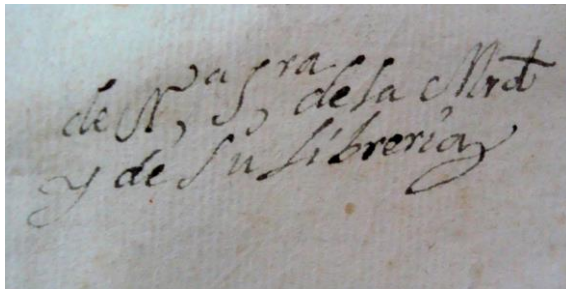 de N,a S,ra de la Mrd
y de Su Libreria